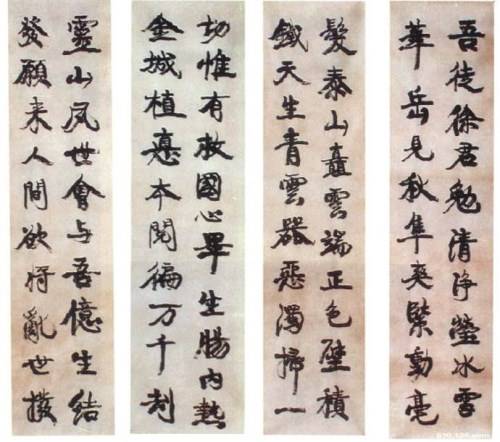 吾徒徐君勉清淨瑩冰雪
華岳見秋隼爽緊動毫
髮泰山矗雲端正色壁積
鐵天生青雲器惡濁掃一
切惟有救國心畢生腸内熱
金城植惪本閱徧万千刦
靈山夙世會与吾憶生結
發願来人間欲将亂世撥